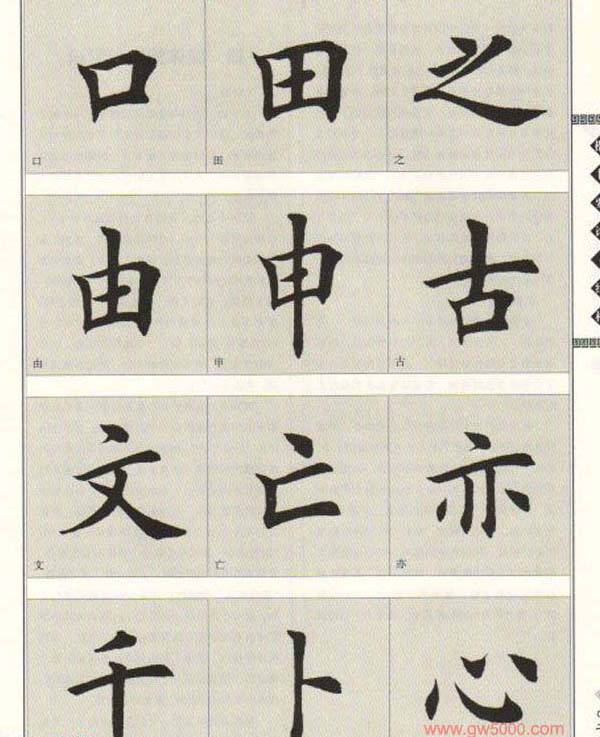 口 田 之
口 田 之
由 申 古
由 申 古
文 亡 亦
文 亡 亦
千 卜 心
www.gw5000.com